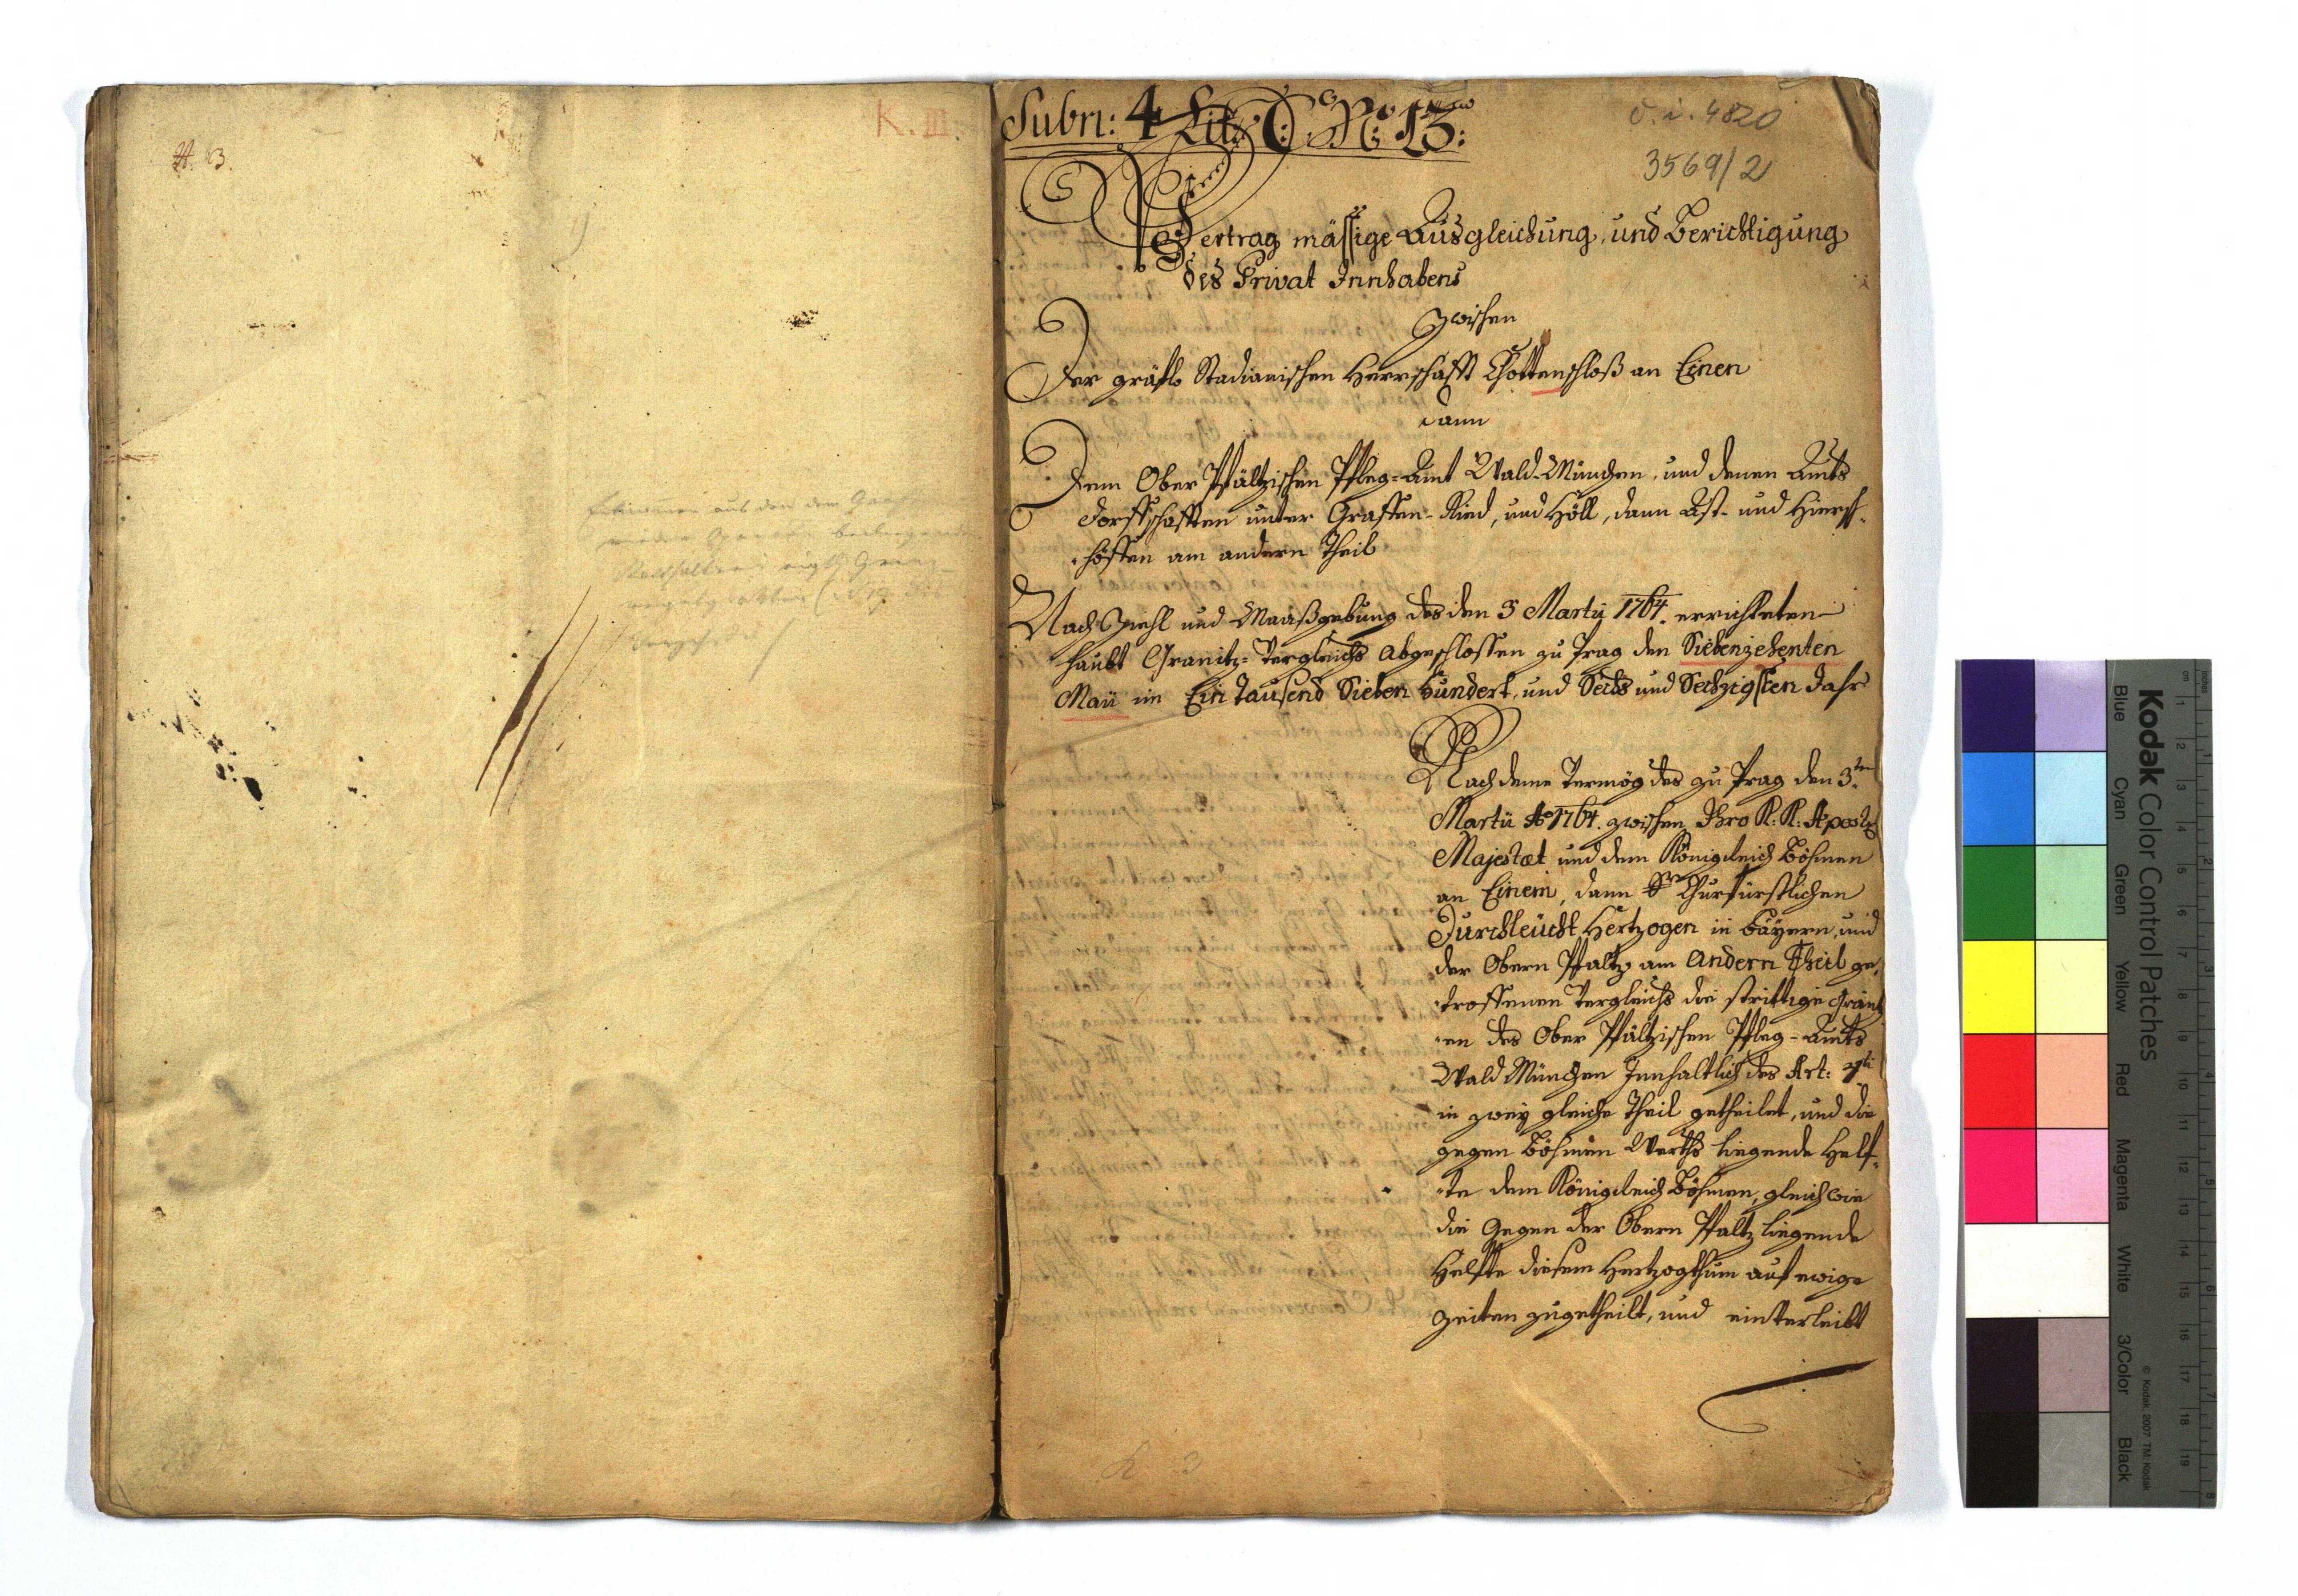 A. 3.
K. III.
Subn: 4 Lit: C: No: 13:
č. i. 4820
3569/2
Vertrag mässige Ausgleichung, und Berichtigung
des Privat Innhabens
zwischen
Der gräfl Stadianischen Herrschafft Chottenschloß an Einen
dann
Dem Ober Pfältzischen Pfleg-Amt Wald-München, und denen Amts
Dorffschafften unter Graffen-Ried, und Höll, dann Ast- und Hiersch-
höffen am andern Theil
Nach Ziehl und Maaßgebung des den 3 Martii 1764. errichteten
haubt Granitz-Vergleichs abgeschlossen zu Prag den Siebenzehenten
Maii im Ein Tausend Sieben Hundert, und Sechs und Sechzigsten Jahr
Nach deme Vermög des zu Prag den 3ten
Martii Ao 1764. zwischen Ihro K: K: Apostl
Majestæt und dem Königreich Böhmen
an Einem, dann Sr Churfürstlichen
Durchleücht Hertzogen in Bäyern, und
der Obern Pfaltz am andern Theil ge-
troffenen Vergleichs die strittige Gräni-
en des Ober Pfältzischen Pfleg-Amts
Wald München Innhaltlich des Art: 7ti
in zwey gleiche Theil getheilet, und die
gegen Böhmen Werths liegende Helf-
te dem Königreich Böhmen, gleichwie
die Gegen der Obern Pfaltz liegende
Helfte diesem Hertzogthum auf ewige
Zeiten zugetheilt, und einverleibt
Kodak Color Control Patches
Blue Cyan Green Yellow Red Magenta White 3/Color Black
© Kodak, 2007 TM: Kodak
inches 1 2 3 4 5 6 7 8
cm 1 2 3 4 5 6 7 8 9 10 11 12 13 14 15 16 17 18 19